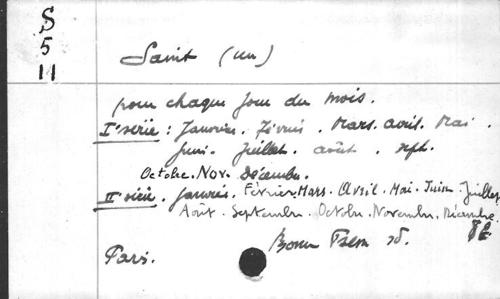 S
5
11
Saint (un)
pour chaque jour du mois.
Iº série : Janvier. Février. Mars. Avril. Mai.
Juin. Juillet. Août. Sept.
Octobre. Nov. Décembre.
IIº série. Janvier. Février. Mars. Avril. Mai. Juin. Juillet
Août. Septembre. Octobre. Novembre. Décembre.
Bonne Presse sd.
Paris.